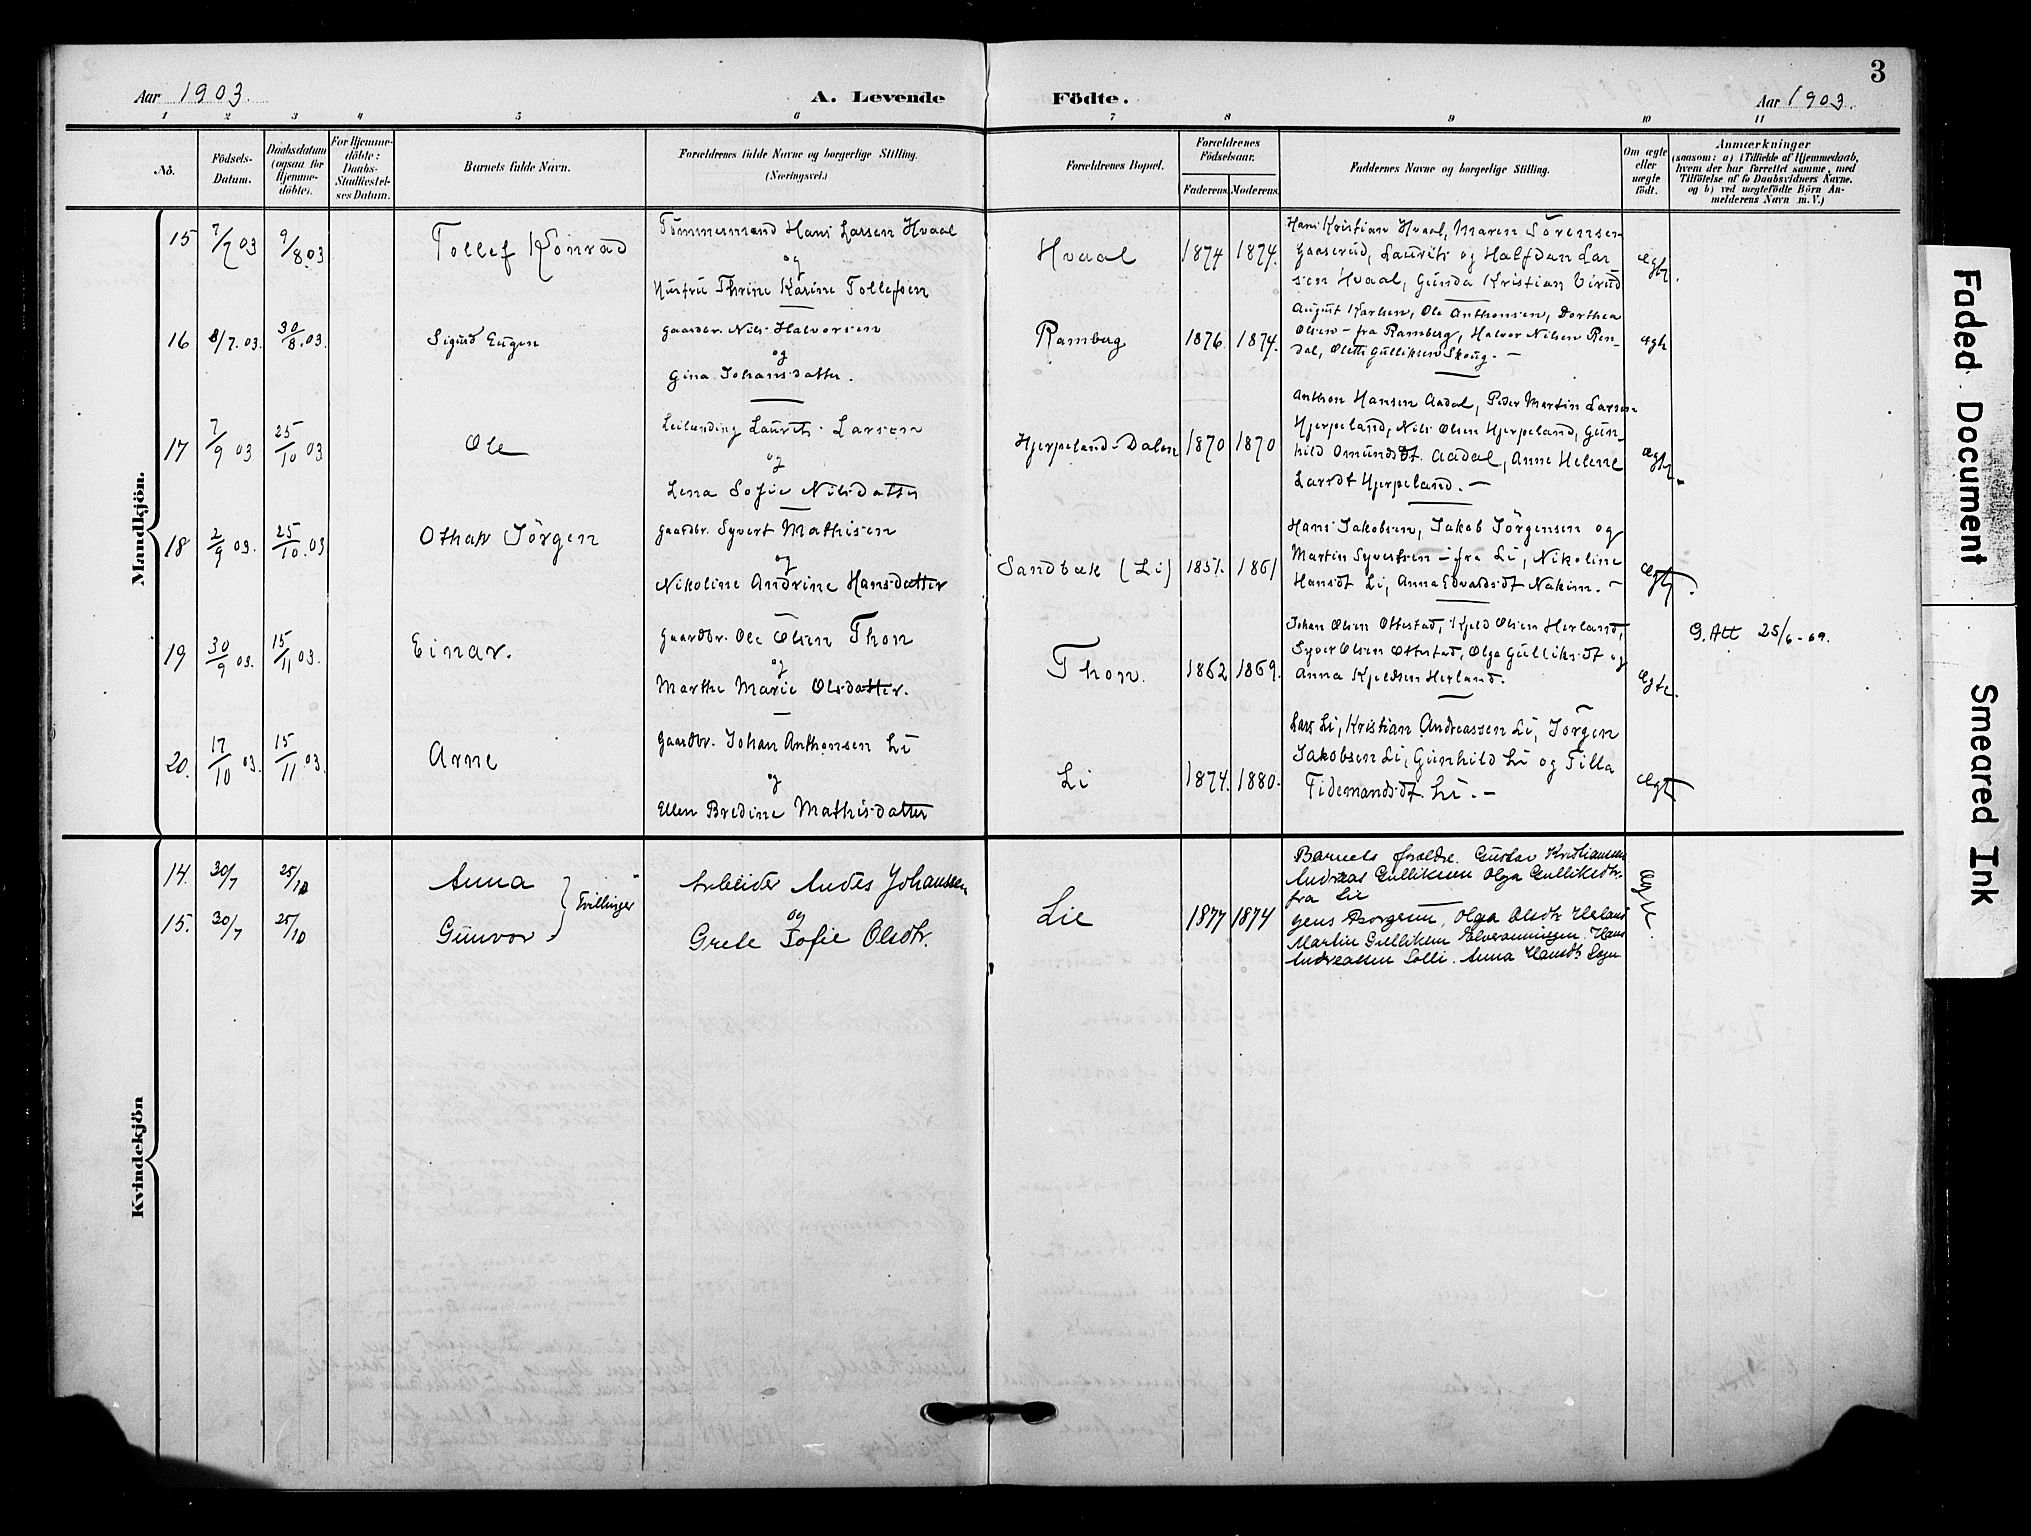 3
Aar 1903.
A. Levende Födte.
Aar 1903.
1 2 3 4 5 6 7 8 9 10 11
No.
Födsels-
Datum.
Daabsdatum
(ogsaa for
Hjemme-
döbte).
For Hjemme-
döbte:
Daabs-
Stadfæstel-
ses Datum.
Barnets fulde Navn.
Forældrenes fulde Navne og borgerlige Stilling.
(Næringsvei.)
Forældrenes Bopæl.
Forældrenes
Födselsaar.
Faderens.
Moderens.
Faddernes Navne og borgerlige Stilling.
Om ægte
eller
uægte
födt.
Anmærkninger
(saasom: a) i Tilfælde af Hjemmedaab,
hvem der har forrettet samme, med
Tilföielse af to Daabsvidners Navne.
og b) ved uægtefödte Börn An-
melderens Navn m. V.)
Mandkjön.
15 7/7 03 9/8.03
Tollef Konrad
Tömmermand Hans Larsen Hvaal
og
Hustru Thrine Karine Tollefsen
Hvaal
1874 1874.
Hans Kristian Hvaal, Maren Sörensen
Gaaserud, Laurits og Halfdan Lar
sen Hvaal, Gunda Kristian Virud
ægte.
16 8/7.03. 30/8.03.
Sigurd Eugen
Gaardbr. Nils Halvorsen
og
Gina Johansdatter.
Ramberg
1876. 1874.
August Karlsen, Ole Anthonsen, Dorthea
Olsen - fra Ramberg, Halvor Nilsen Ren-
dal, Olette Gulliksen Skoug. -
ægte
17 7/9 03 25/10 03
Ole
Leilending Laurits Larsen
og
Lena Sofie Nilsdatter
Hjerpeland-Dalen
1870 1870
Anthon Hansen Aadal, Peder Martin Larsen
Hjerpeland, Nils Olsen Hjerpeland, Gun-
hild Omundsdt. Aadal, Anne Helene
Larsdt Hjerpeland. -
ægte.
18 2/9 03. 25/10.03
Othar Jörgen
Gaardbr. Syvert Mathisen
og
Nikoline Andrine Hansdatter
Sandbæk (Li)
1857. 1861
Hans Jakobsen, Jakob Jörgensen og
Martin Syvertsen - fra Li, Nikoline
Hansdt Li, Anna Edvardsdt Nakim. -
ægte.
19 30/9 03. 15/11 03.
Einar.
Gaardbr. Ole Olsen Thon
og
Marthe Marie Olsdatter.
Thon.
1862 1869.
Johan Olsen Ottestad, Kjeld Olsen Herland,
Syver Olsen Ottestad, Olga Gulliksdt og
Anna Kjeldsen Herland.
ægte.
G. Att 25/6-69.
20. 17/10 03. 15/11 03.
Arne
Gaardbr. Johan Anthonsen Li
og
Ellen Bredine Mathisdatter
Li
1874. 1880.
Lars Li, Kristian Andreassen Li, Jörgen
Jakobsen Li, Gunhild Li og Tilla
Tidemandsdt. Li. -
ægte
Kvindekjön
14. 30/7 25/10
Anna
15. 30/7 25/10
Gunvor
Tvillinger
Arbeider Andes Johanssen
og
Grete Sofie Olsdtr.
Lie
1877 1874
Barnets forældre. Gustav Kristiansen
Andreas Gulliksen Olga Gulliksdtr.
fra Lie
Jens Borgersen, Olga Olsdtr Herland
Martin Gulliksen Hans
Andreassen Solli. Anna Hansdtr
ægte.
Faded Document
Smeared Ink